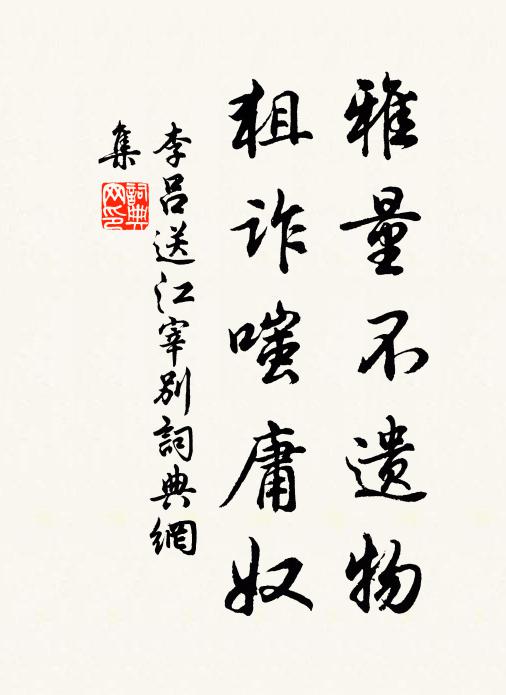 雅量不遗物
粗诈嗤庸奴
李吕送江宰别詞典網
集
詞典网印